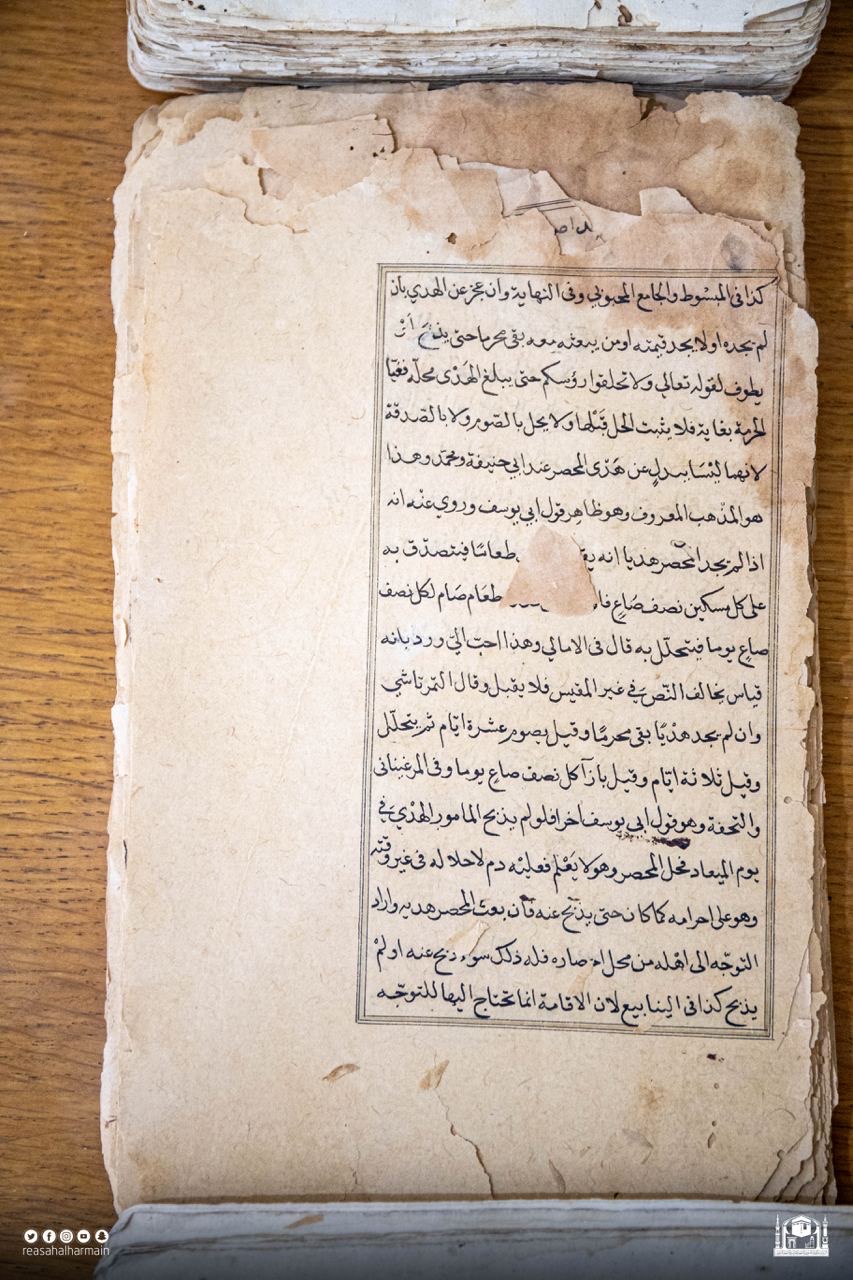 كذا فى المبسوط والجامع المحبوبي وفى النهاية وان عجز عن الهدي بان
لم يجده او لا يجد قيمته او من يبعثه معه بقى محرما حتى يذبح أو
يطوف لقوله تعالى ولا تحلقوا رؤسكم حتى يبلغ الهَدْى محلّه فغيّا
الحرمة بغاية فلا يثبت الحل قَبْلها ولا يحل بالصّوم ولا بالصّدقة
لانهما ليْسَا ببدلٍ عن هَدْى المحصر عند ابي حنيفة ومحمّد وهذا
هو المذهب المعروف وهو ظاهر قول ابي يوسف وروي عنْه انه
اذا لم يجد المحصر هديا انه طعامًا فيتصدّق به
على كل مسكين نصف صَاعٍ طعَام صَام لكل نصف
صاعٍ يوما فيتحلّل به قال فى الامالي وهذا احبّ اليّ ورد بانه
قياس يخالف النّص في غير المقيس فلا يقبل وقال التمرتاشي
وان لم يجد هدْيًا بقى محرمًا وقيل يصوم عشرة ايّام ثم يتحلّل
وقيل ثلاثة ايّام وقيل بازآ كل نصف صاعٍ يوما وفى المرغينانى
والتحفة وهو قول ابي يوسف اخرا فلو لم يذبح المامور الهدْيَ في
يوم الميعاد فحل المحصر وهو لا يَعْلم فعليْه دم لاحلاله فى غير وقته
وهو على احرامه كما كان حتى يذبح عنه فان بعث المحصر هديه واراد
التوجّه الى اهْله من محل احصاره فله ذلك سوء ذبح عنه او لمْ
يذبح كذا فى الينابيع لان الاقامة انما تحتاج اليها للتوجّه
reasahalharmain